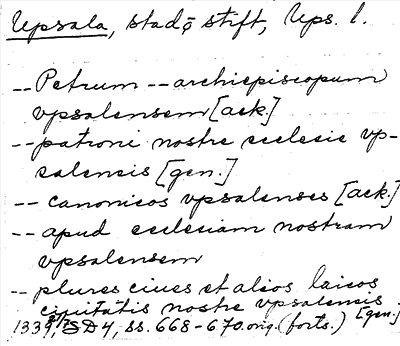 Upsala, stad o stift, Ups. l.
-- Petrum -- archiepiscopum
vpsalensem [ack.]
-- patroni nostre ecclesie vp-
salensis [gen.]
-- canonicos vpsalenses [ack.]
-- apud ecclesiam nostram
vpsalensem
-- plures ciues et alios laicos
ciuitatis nostre vpsalensis [gen.]
1339, SD 4, ss. 668-670. orig. (forts.)